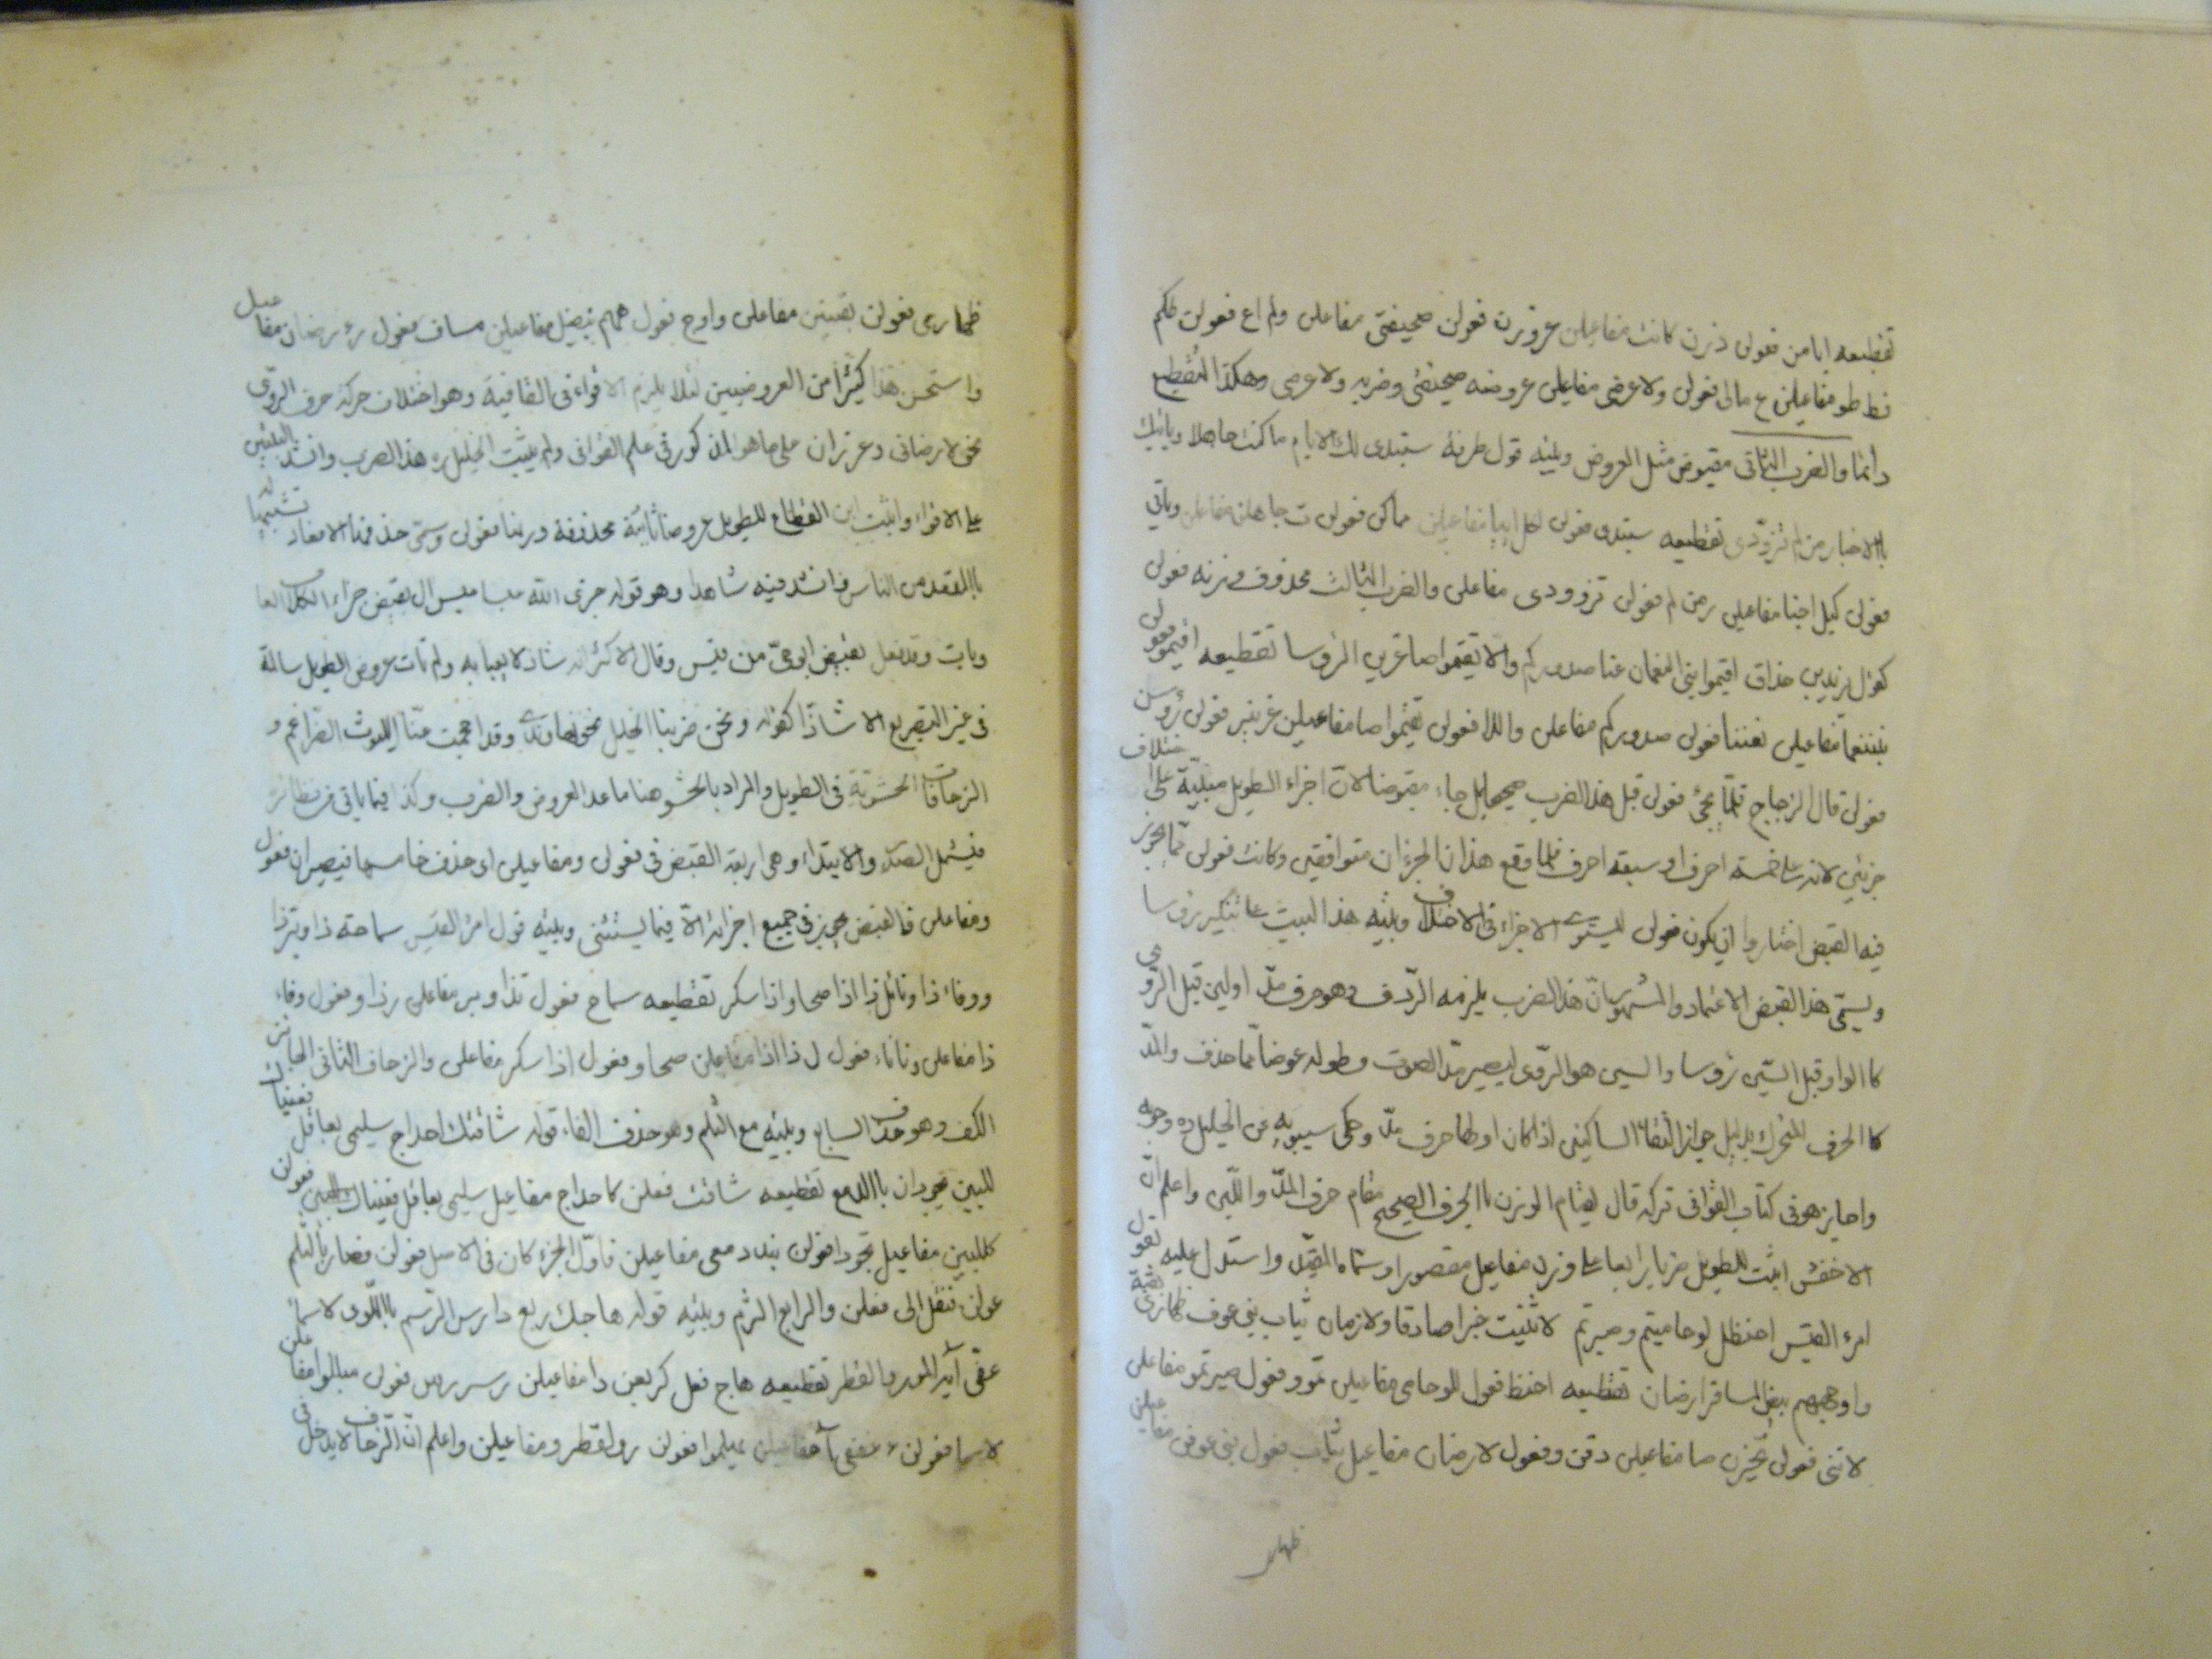 تقطيعه ابا من فعولن ذرن كانت مفاعيلن غرورن فعولن صحيفتى مفاعلن ولم اع فعولن طكم
فط طو مفاعيلن ع مالى فعولن ولا عرضى مفاعيلن عروضه صحيفتى وضربه ولا عرضى وهكذا التقطيع
دائما والضرب الثانى مقبوض مثل العروض وبيته قول طرفة ستبدى لك الايام ما كنت جاهلا وياتيك
بالاخبار من لم تزودى تقطيعه ستبدى فعولن لكل ايا مفاعيلن مماكن فعولن ت جاهلن مفاعلن وياتى
فعولن كيل اخبا مفاعيلن رمن لم فعولن تزوودى مفاعلن والضرب الثالث محذوف وزنه فعولن
كقول يزيد بن خذاق اقيموا بنى النعمان عنا صدوركم والا تقيموا صاغرين الرؤسا تقطيعه اقيمو فعولن
بنننعما مفاعيلن نعننا فعولن صدوركم مفاعلن واللا فعولن تقيموا صا مفاعيلن غرينر فعولن رؤسن
فعولن قال الزجاج قلما يجئ فعولن قبل هذا الضرب صحيحا بل جاء مقبوضا لان اجزاء الطويل مبنية على اختلاف
جزئين لانه على خمسة احرف او سبعة احرف فلما وقع هذان الجزءان متوافقين وكانت فعولن مما يجوز
فيه القبض اختاروا ان يكون فعولن ليستوى الاجزاء فى الاختلاف وبيته هذا البيت على تنكير رؤسا
ويسمى هذا القبض الاعتماد والمشهور بان هذا الضرب يلزمه الردف وهو حرف مد اولين قبل الروى
كالواو قبل السين رؤسا والسين هو الروى ليصير مد الصوت وطوله عوضا مما حذف والمد
كالحرف المتحرك بدليل جواز التقاء الساكنين اذا كان اولهما حرف مد وحكى سيبويه عن الخليل ره وجه
واجاز هو فى كتاب القوافى تركه قال لقيام الوزن بالحرف الصحيح مقام حرف المد واللين واعلم ان
الاخفش اثبت للطويل ضربا رابعا على وزن مفاعيل مقصورا وسماه المقيد واستدل عليه بقول
امرء القيس احنظل لو حاميتم وصبرتم لاثنيت خيرا صادقا ولارضان ثياب بنى عوف طهارى نقية
واوجههم بيض المسافر ارضان تقطيعه احنظ فعول للوحامى مفاعيلن تموو فعول صبرتمو مفاعلن
لاثنى فعولن تخيرن صا مفاعيلن دقن و فعول لارضان مفاعيل ثياب فعول بنى عوفن مفاعيلن
طهار
طهارى فعولن نقييتن مفاعلن واوج فعول ههم بيض ل مفاعيلن مساف فعول رءرضان مفاعيل
واستحسن هذا كثيرا من العروضيين لئلا يلزم الاقواء فى القافية وهو اختلاف حركة حرف الروى
نحو لارضانى وغرزان على ما هو المذكور فى علم القوافى ولم يثبت الخليل ره هذا الضرب وانشد البيتين
على الاقواء واثبت ابن القطاع للطويل عروضا ثانية محذوفة وزنها فعولن وسمى حذفها الاقعاد تشبيها له
بالمقعد من الناس وانشد فيه شاهدا وهو قوله جزى الله عبسا عبس ال بغيض جزاء الكلاب العا
ويات وقد فعل بغيض ابوحى من قيس وقال الاكثر انه شاذ لا يعبا به ولم تات عروض الطويل سالمة
فى غير التصريع الا شاذا كقوله ونحن ضربنا الخيل نحو نهاوند وقد احجمت عنا الليوث الضراغم و
الزحافات الحشوية فى الطويل والمراد بالحشو هنا ما عدا العروض والضرب وكذا فيما ياتى من نظائره
فيشمل الصدر والابتداء وهى اربعة القبض فى فعولن ومفاعيلن اى حذف خامسهما فيصيران فعول
ومفاعلن فالقبض يجوز فى جميع اجزائه الا فيما يستثنى وبيته قول امرء القيس سماحة ذا وبر ذا
ووفاء ذا ونائل ذا اذا صحا واذا سكر تقطيعه سماح فعول تذا وبر مفاعلن رذا و فعول وفاء
ذا مفاعلن ونائ فعول ل ذا اذا مفاعلن صحا و فعول اذا سكر مفاعلن والزحاف الثانى الجائز
الكف وهو حذف السابع وبيته مع الثلم وهو حذف الفاء قوله شاقتك احداج سليمى بعاقل فعيناك
للبين تجودان بالدمع تقطيعه شاقت فعلن كاحداج مفاعيل سليمى بعاقل فعيناك فعولن
كللبين مفاعيل تجودا فعولن نبددمعى مفاعيلن فاول الجزء كان فى الاصل فعولن فصار بالثلم
عولن فنقل الى فعلن والرابع الثرم وبيته قوله هاجك ربع دارس الرسم باللوى لاسماء
عفى آيه المور والقطر تقطيعه هاج فعل كربعن دا مفاعيلن رسررس فعولن مباللوا مفاعلن
لاسما فعولن ء عففى آ مفاعيلن يهلموا فعولن رولقطرو مفاعيلن واعلم ان الزحاف لا يدخل فى